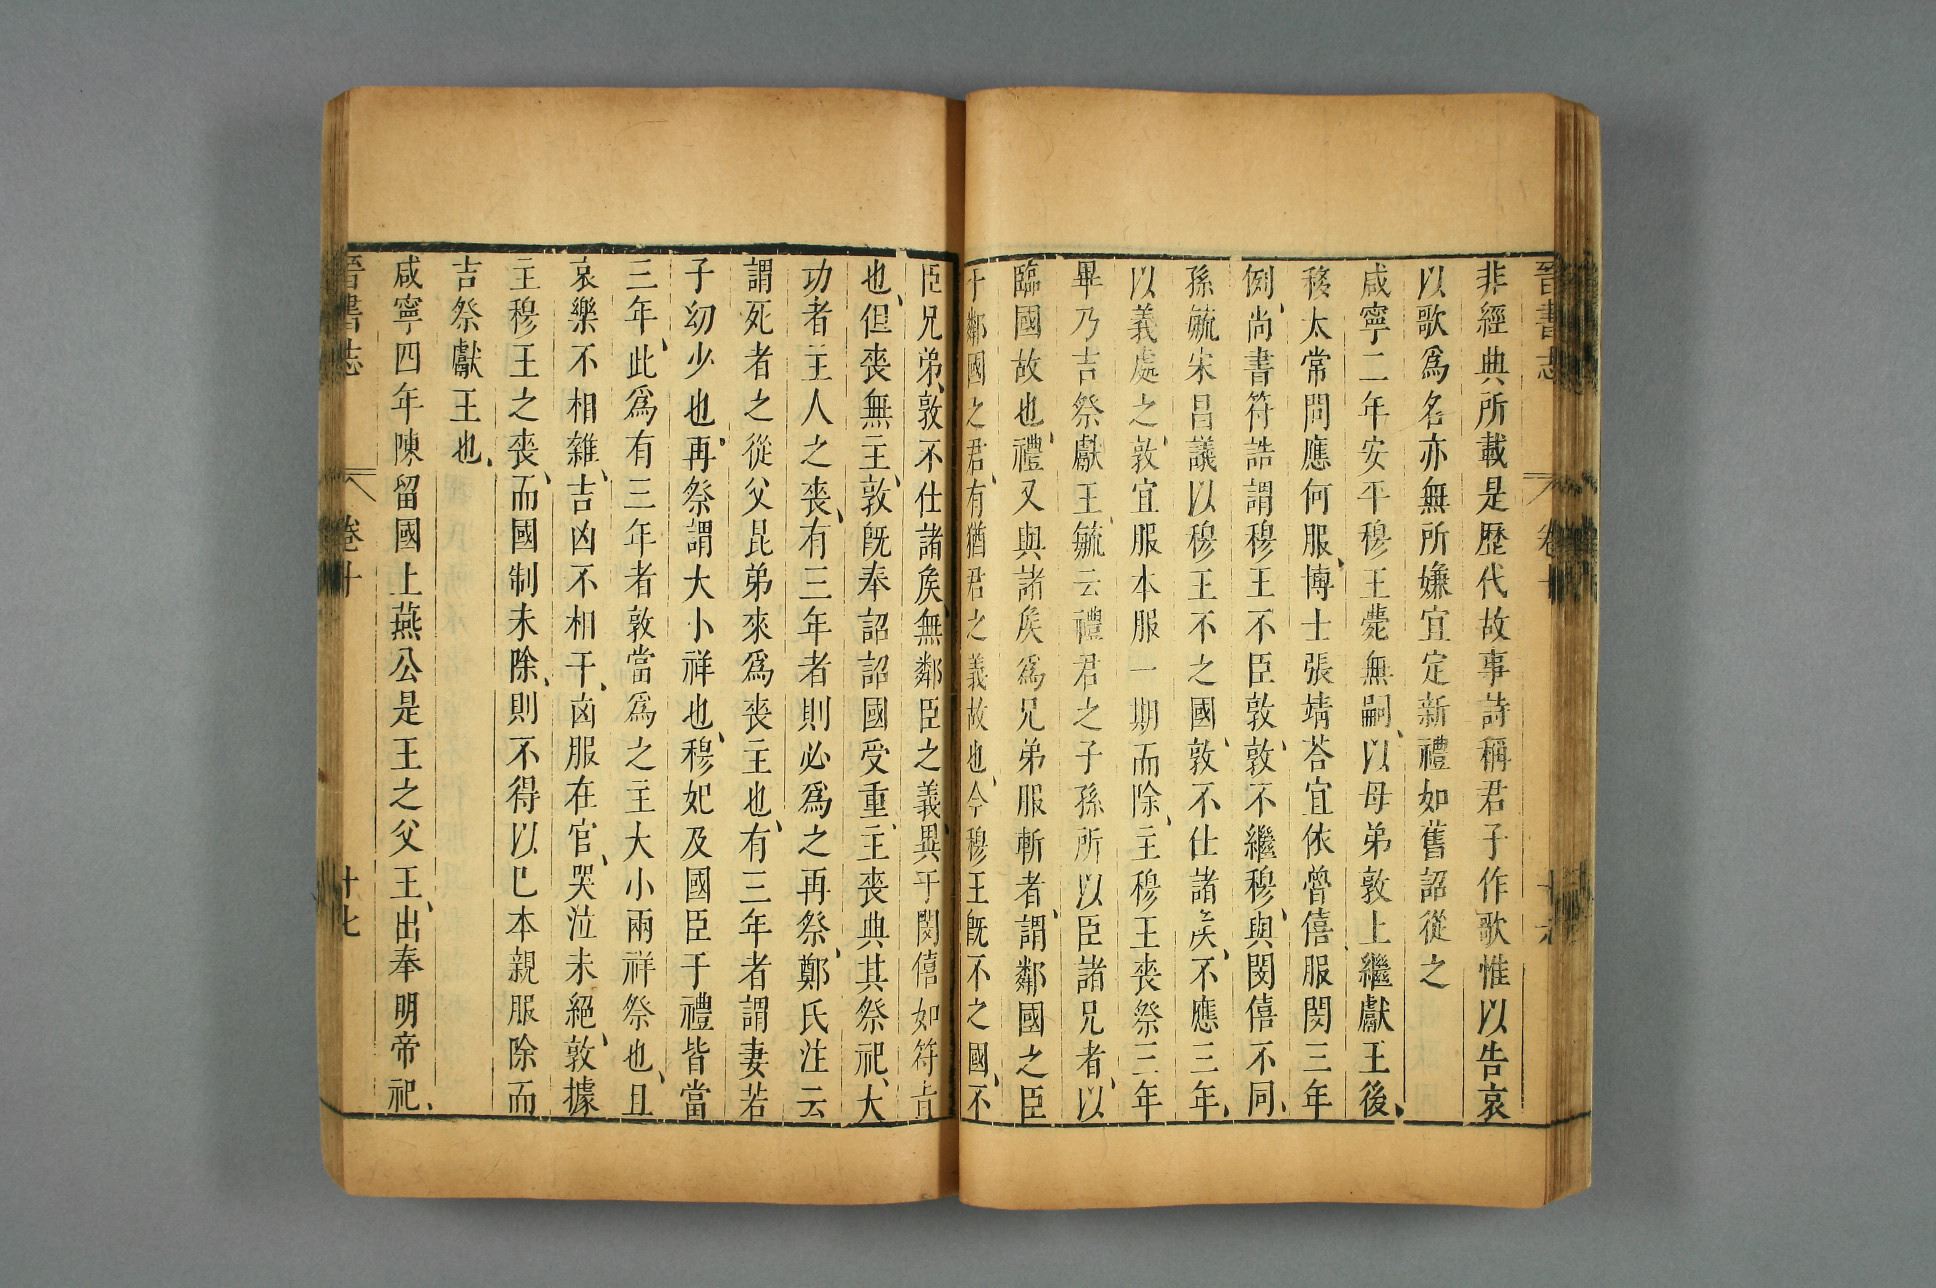 晉書志 卷十
非經典所載是歷代故事詩稱君子作歌惟以告哀
以歌爲名亦無所嫌宜定新禮如舊詔從之
咸寧二年安平穆王薨無嗣以母弟敦上繼獻王後
移太常問應何服博士張靖荅宜依魯僖服閔三年
例尚書符詰謂穆王不臣敦敦不繼穆與閔僖不同
孫毓宋昌議以穆王不之國敦不仕諸矦不應三年
以義處之敦宜服本服一期而除主穆王喪祭三年
畢乃吉祭獻王毓云禮君之子孫所以臣諸兄者以
臨國故也禮又與諸矦爲兄弟服斬者謂鄰國之臣
于鄰國之君有猶君之義故也今穆王旣不之國不
臣兄弟敦不仕諸矦無鄰臣之義異于閔僖如符旨
也但喪無主敦旣奉詔詔國受重主喪典其祭祀大
功者主人之喪有三年者則必爲之再祭鄭氏注云
謂死者之從父昆弟來爲喪主也有三年者謂妻若
子幼少也再祭謂大小祥也穆妃及國臣于禮皆當
三年此爲有三年者敦當爲之主大小兩祥祭也且
哀樂不相雜吉凶不相干凶服在宮哭泣未絕敦據
主穆王之喪而國制未除則不得以己本親服除而
吉祭獻王也
咸寧四年陳留國上燕公是王之父王出奉明帝祀
晉書志 卷十 十七